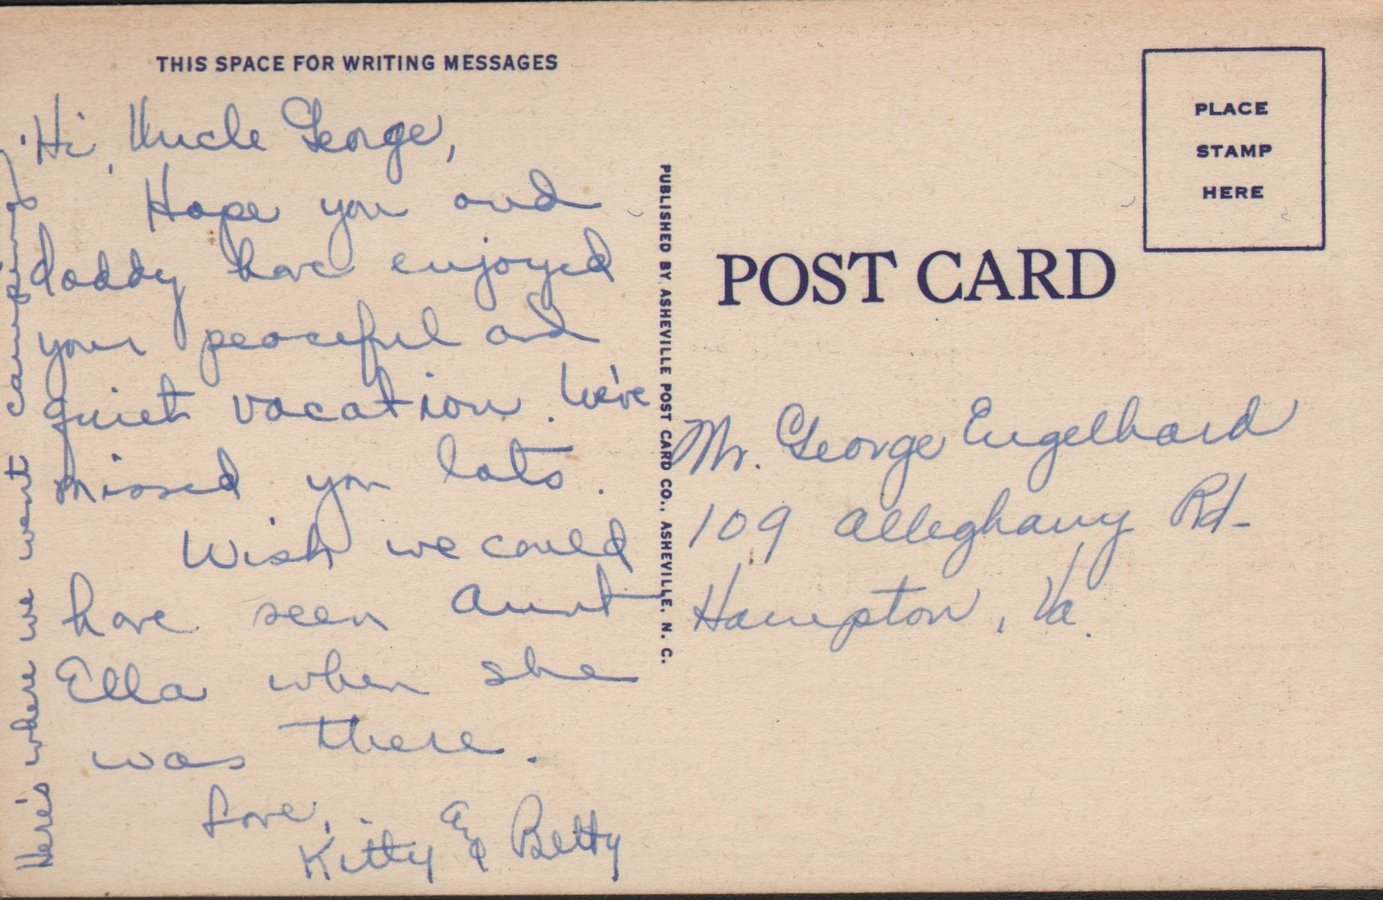 THIS SPACE FOR WRITING MESSAGES
Hi, Uncle George,
Hope you and
daddy have enjoyed
your peaceful and
quiet vacation. We've
missed you lots.
Wish we could
have seen Aunt
Ella when she
was there.
Love,
Kitty and Betty
Here's where we went camping
PUBLISHED BY ASHEVILLE POST CARD CO., ASHEVILLE, N. C.
PLACE
STAMP
HERE
POST CARD
Mr. George Engelhard
109 Alleghany Rd.
Hampton, Va.